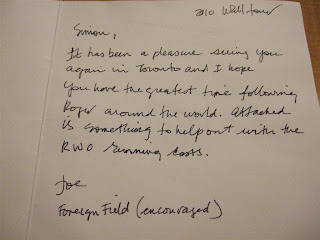 2010 Wall tour
Simon,
It has been a pleasure seeing you
again in Toronto and I hope
you have the greatest time following
Roger around the world. Attached
is something to help out with the
RWO running costs.
Joe
Foreign Field (encouraged)